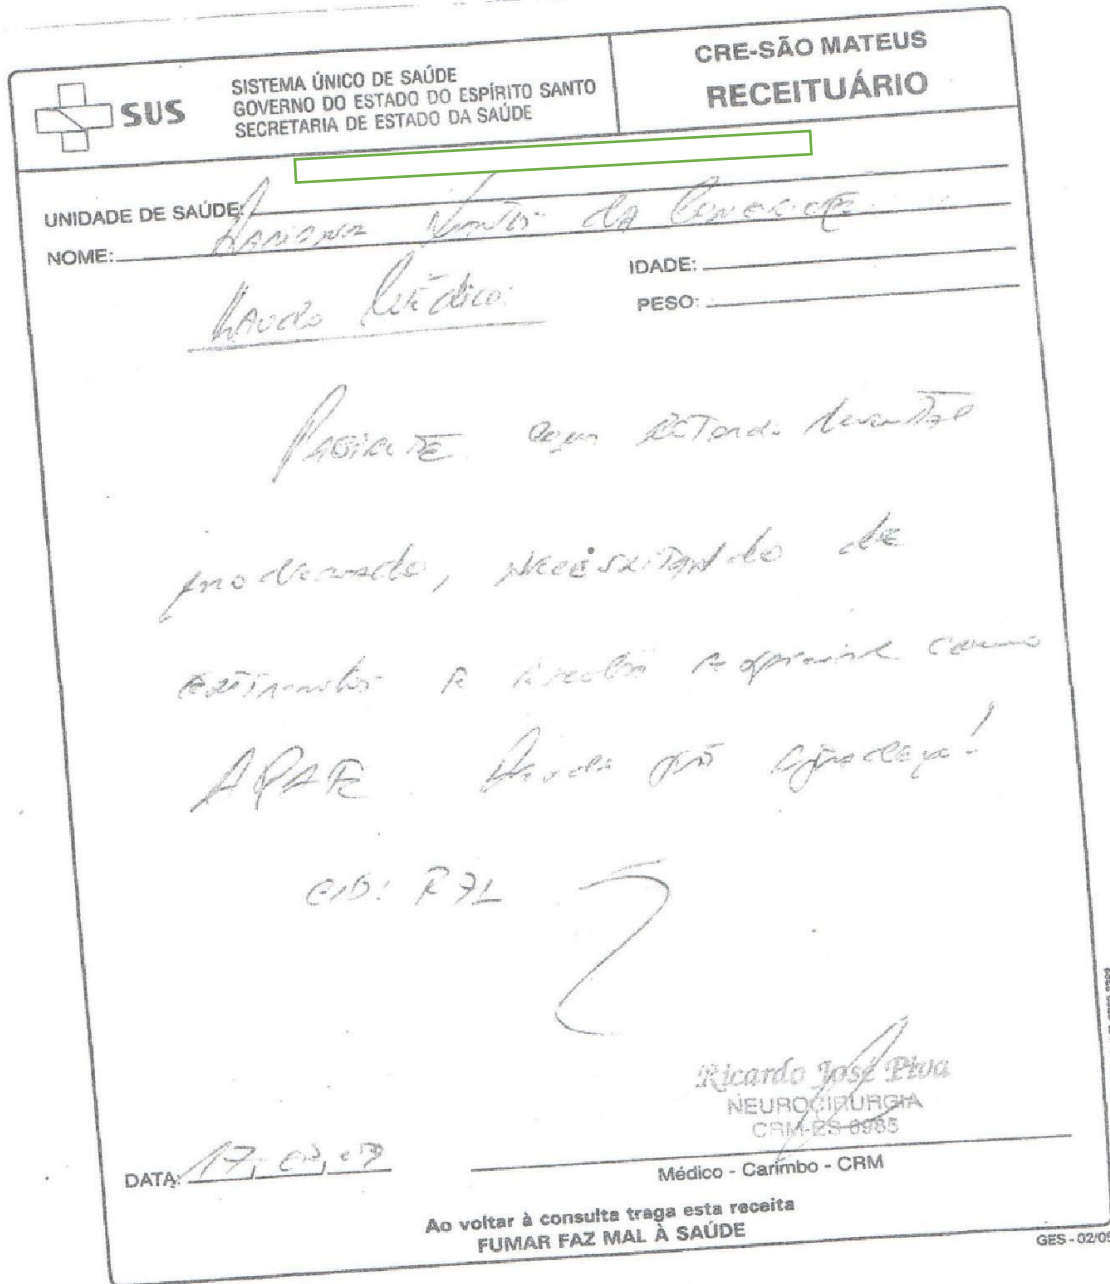 SUS
SISTEMA ÚNICO DE SAÚDE
GOVERNO DO ESTADO DO ESPÍRITO SANTO
SECRETARIA DE ESTADO DA SAÚDE
CRE-SÃO MATEUS
RECEITUÁRIO
UNIDADE DE SAÚDE:
NOME: da
IDADE:
PESO:
Laudo Médico:
Paciente com retardo mental
moderado, necessitando de
a escola especial como
APAE
CID: F71
Ricardo José Piva
NEUROCIRURGIA
CRM-ES
DATA: 17
Médico - Carimbo - CRM
Ao voltar à consulta traga esta receita
FUMAR FAZ MAL À SAÚDE
GES - 02/05